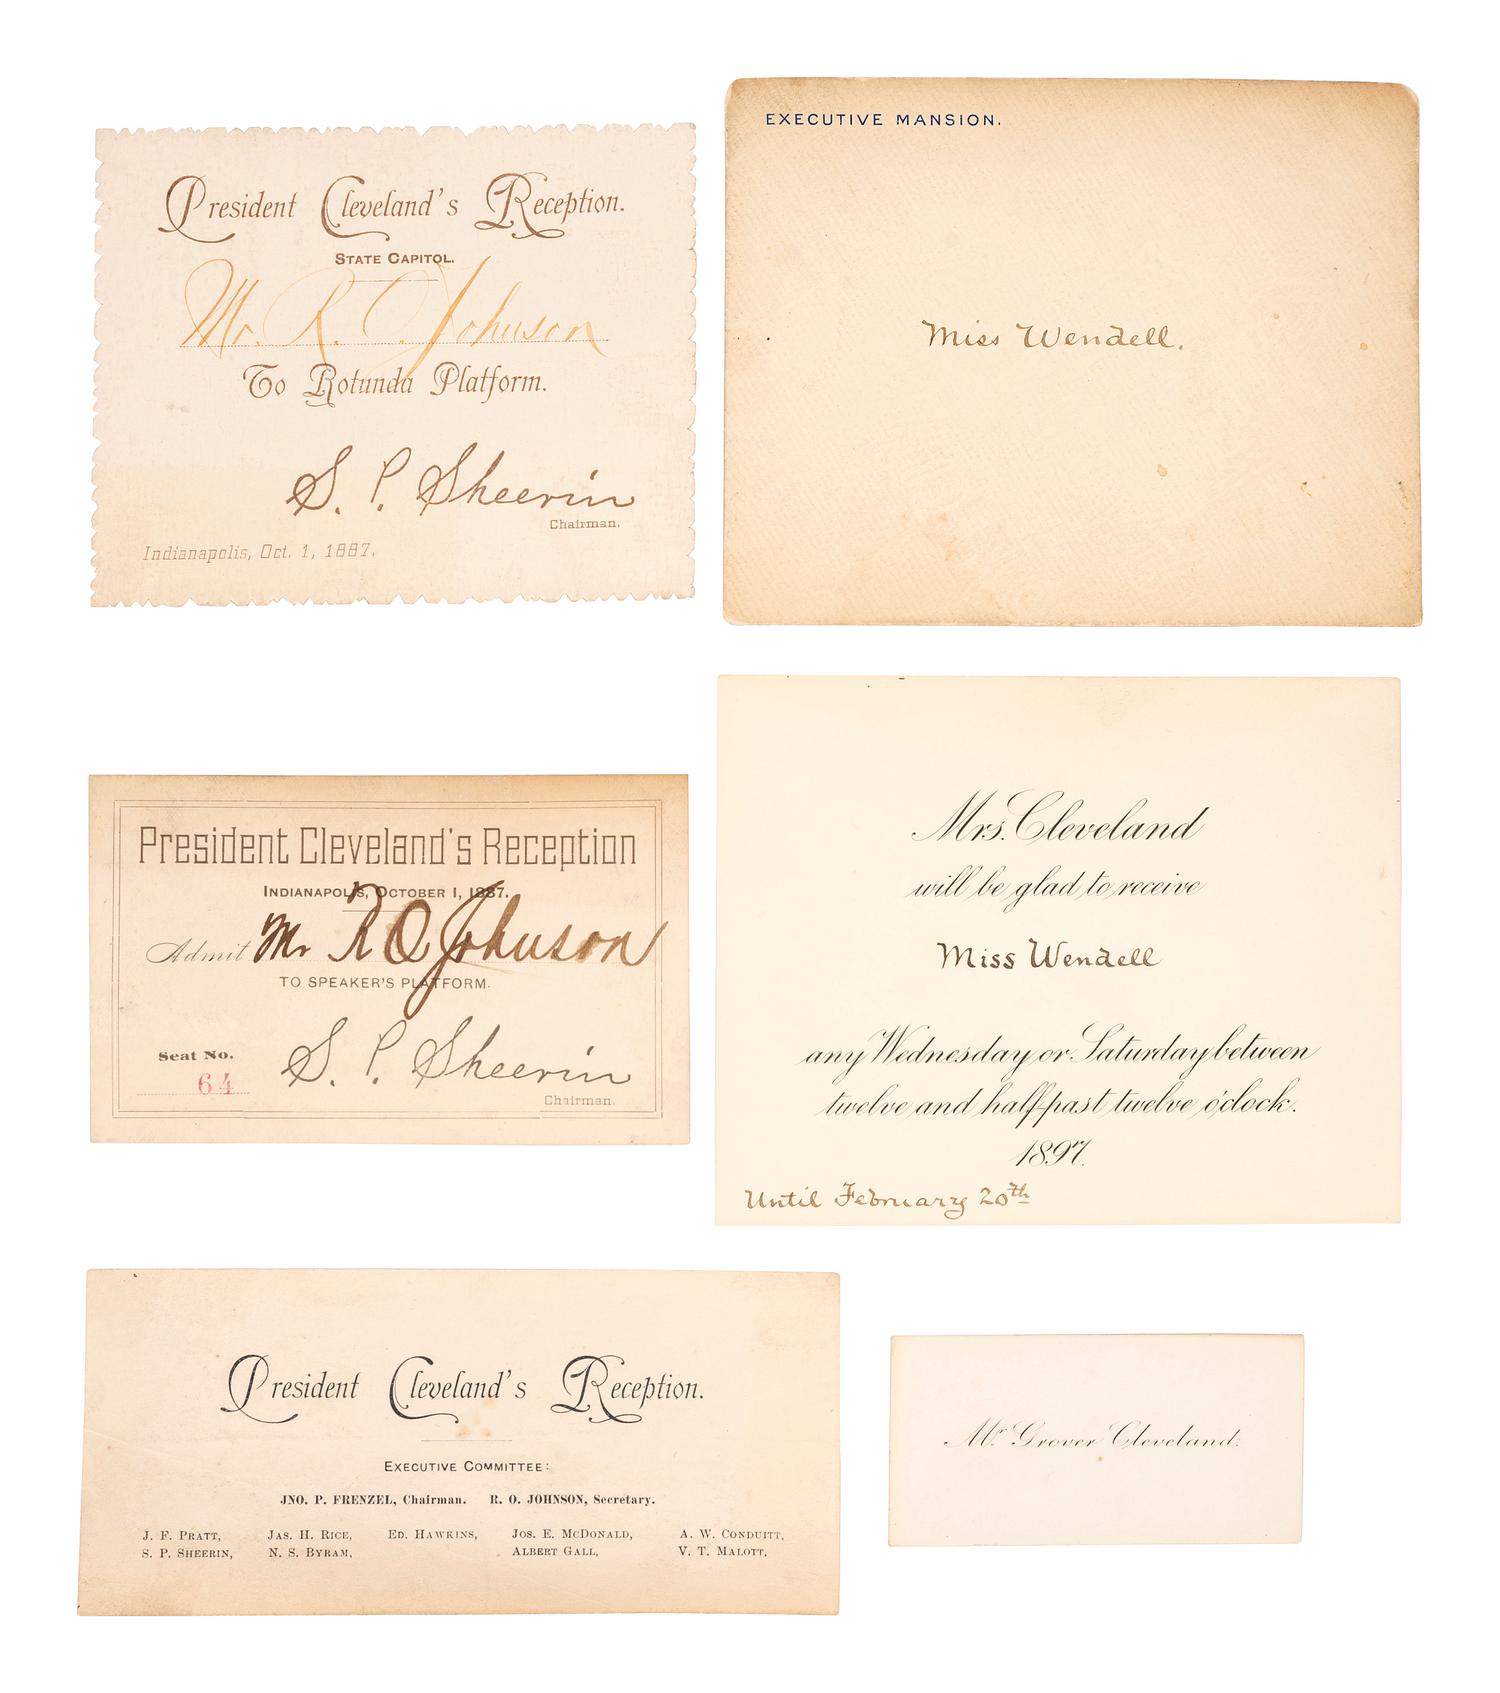 President Cleveland's Reception.
STATE CAPITOL.
Mr. R. O. Johnson
To Rotunda Platform.
S. P. Sheerin
Chairman.
Indianapolis, Oct. 1, 1887.
EXECUTIVE MANSION.
Miss Wendell.
President Cleveland's Reception
INDIANAPOLIS, OCTOBER 1, 1887.
Admit Mr R O Johnson
TO SPEAKER'S PLATFORM.
Seat No.
64
S. P. Sheerin
Chairman.
Mrs. Cleveland
will be glad to receive
Miss Wendell
any Wednesday or Saturday between
twelve and half-past twelve o'clock.
1897.
Until February 20th
President Cleveland's Reception.
EXECUTIVE COMMITTEE:
JNO. P. FRENZEL, Chairman. R. O. JOHNSON, Secretary.
J. F. PRATT, JAS. H. RICE, ED. HAWKINS, JOS. E. MCDONALD, A. W. CONDUITT,
S. P. SHEERIN, N. S. BYRAM, ALBERT GALL, V. T. MALOTT.
Mr. Grover Cleveland.